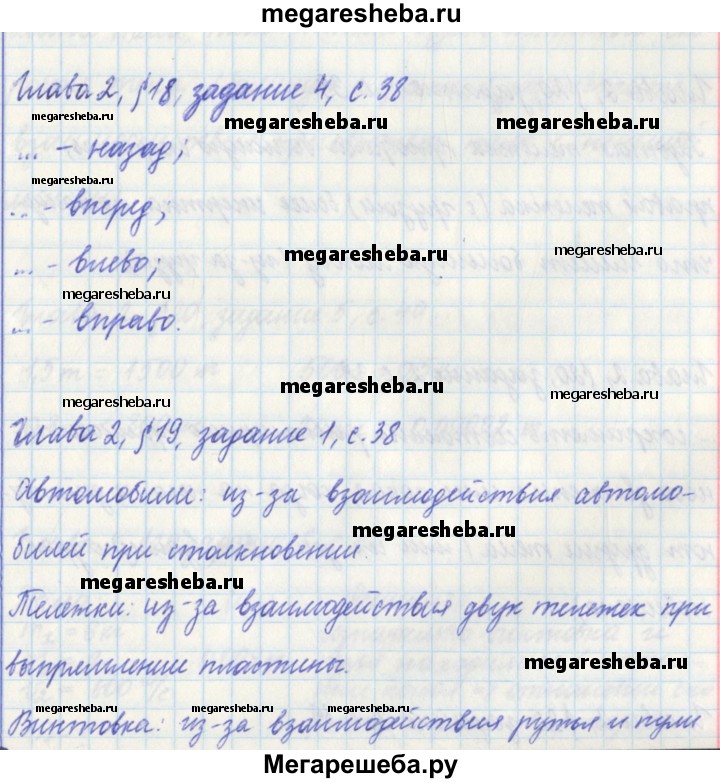 megaresheba.ru
megaresheba.ru
Глава 2, §18, задание 4, с. 38
megaresheba.ru megaresheba.ru
... - назад;
megaresheba.ru
... - вперед;
megaresheba.ru
... - влево;
megaresheba.ru
... - вправо.
megaresheba.ru
megaresheba.ru megaresheba.ru
Глава 2, §19, задание 1, с. 38
megaresheba.ru
Автомобили: из-за взаимодействия автомо-
megaresheba.ru
билей при столкновении.
megaresheba.ru
Тележки: из-за взаимодействия двух тележек при
megaresheba.ru
выпрямлении пластины.
megaresheba.ru megaresheba.ru megaresheba.ru megaresheba.ru
Винтовка: из-за взаимодействия ружья и пули
Мегарешеба.ру